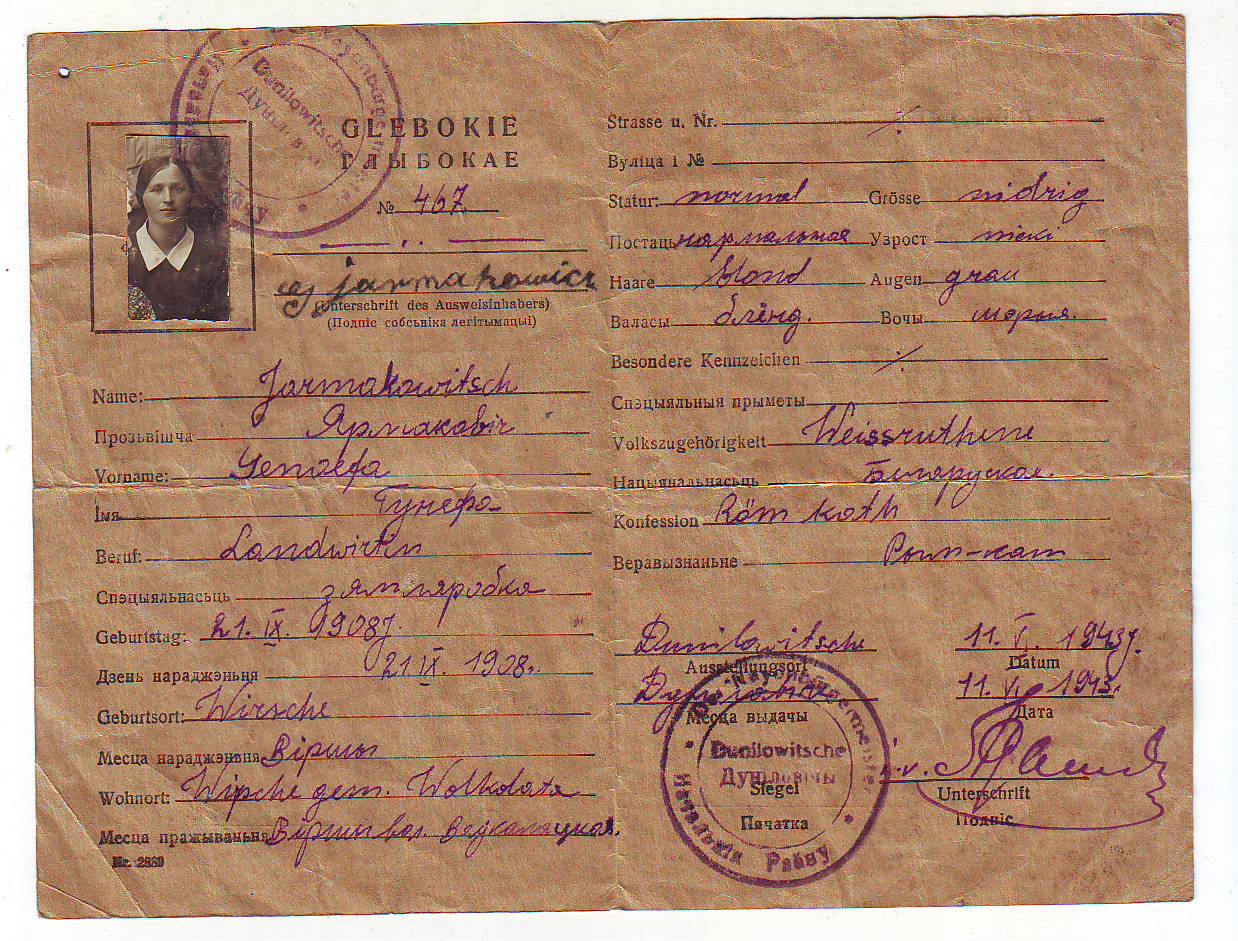 Dunilowitsche
GLEBOKIE
ГЛЫБОКАЕ
№ 467
G Jarmakowicz
(Unterschrift des Ausweisinhabers)
(Подпіс собсьніка легітымацыі)
Name: Jarmakowitsch
Прозьвішча Ярмакавіч
Vorname: Genoefa
Імя Гунефа
Beruf: Landwirtin
Спэцыяльнасьць зямляробка
Geburtstag: 21. IX. 1908j.
Дзень нараджэньня 21 IX. 1908.
Geburtsort: Wirsche
Месца нараджэньня Віршы
Wohnort: Wirsche gem. Wolkolata
Месца пражываньня Віршы вол. Ваўкалацкая.
Nr. 2889
Strasse u. Nr.
Вуліца і №
Statur: normal Grösse nidrig
Постаць нармальная Узрост nicki
Haare blond Augen grau
Валасы блёнд. Вочы шэрыя.
Besondere Kennzeichen
Спэцыяльныя прыметы
Volkszugehörigkeit Weissruthene
Нацыянальнасьць Беларуская.
Konfession Röm kath
Веравызнаньне Рым-кат
Dunilowitsche 11. V. 1943j.
Ausstellungsort Datum
11. V. 1943.
Месца выдачы Дата
Der Rayonbürgermeister
Dunilowitsche
Дунілавічы
Siegel
Пячатка
Начальнік Раёну
i.v.
Unterschrift
Подпіс